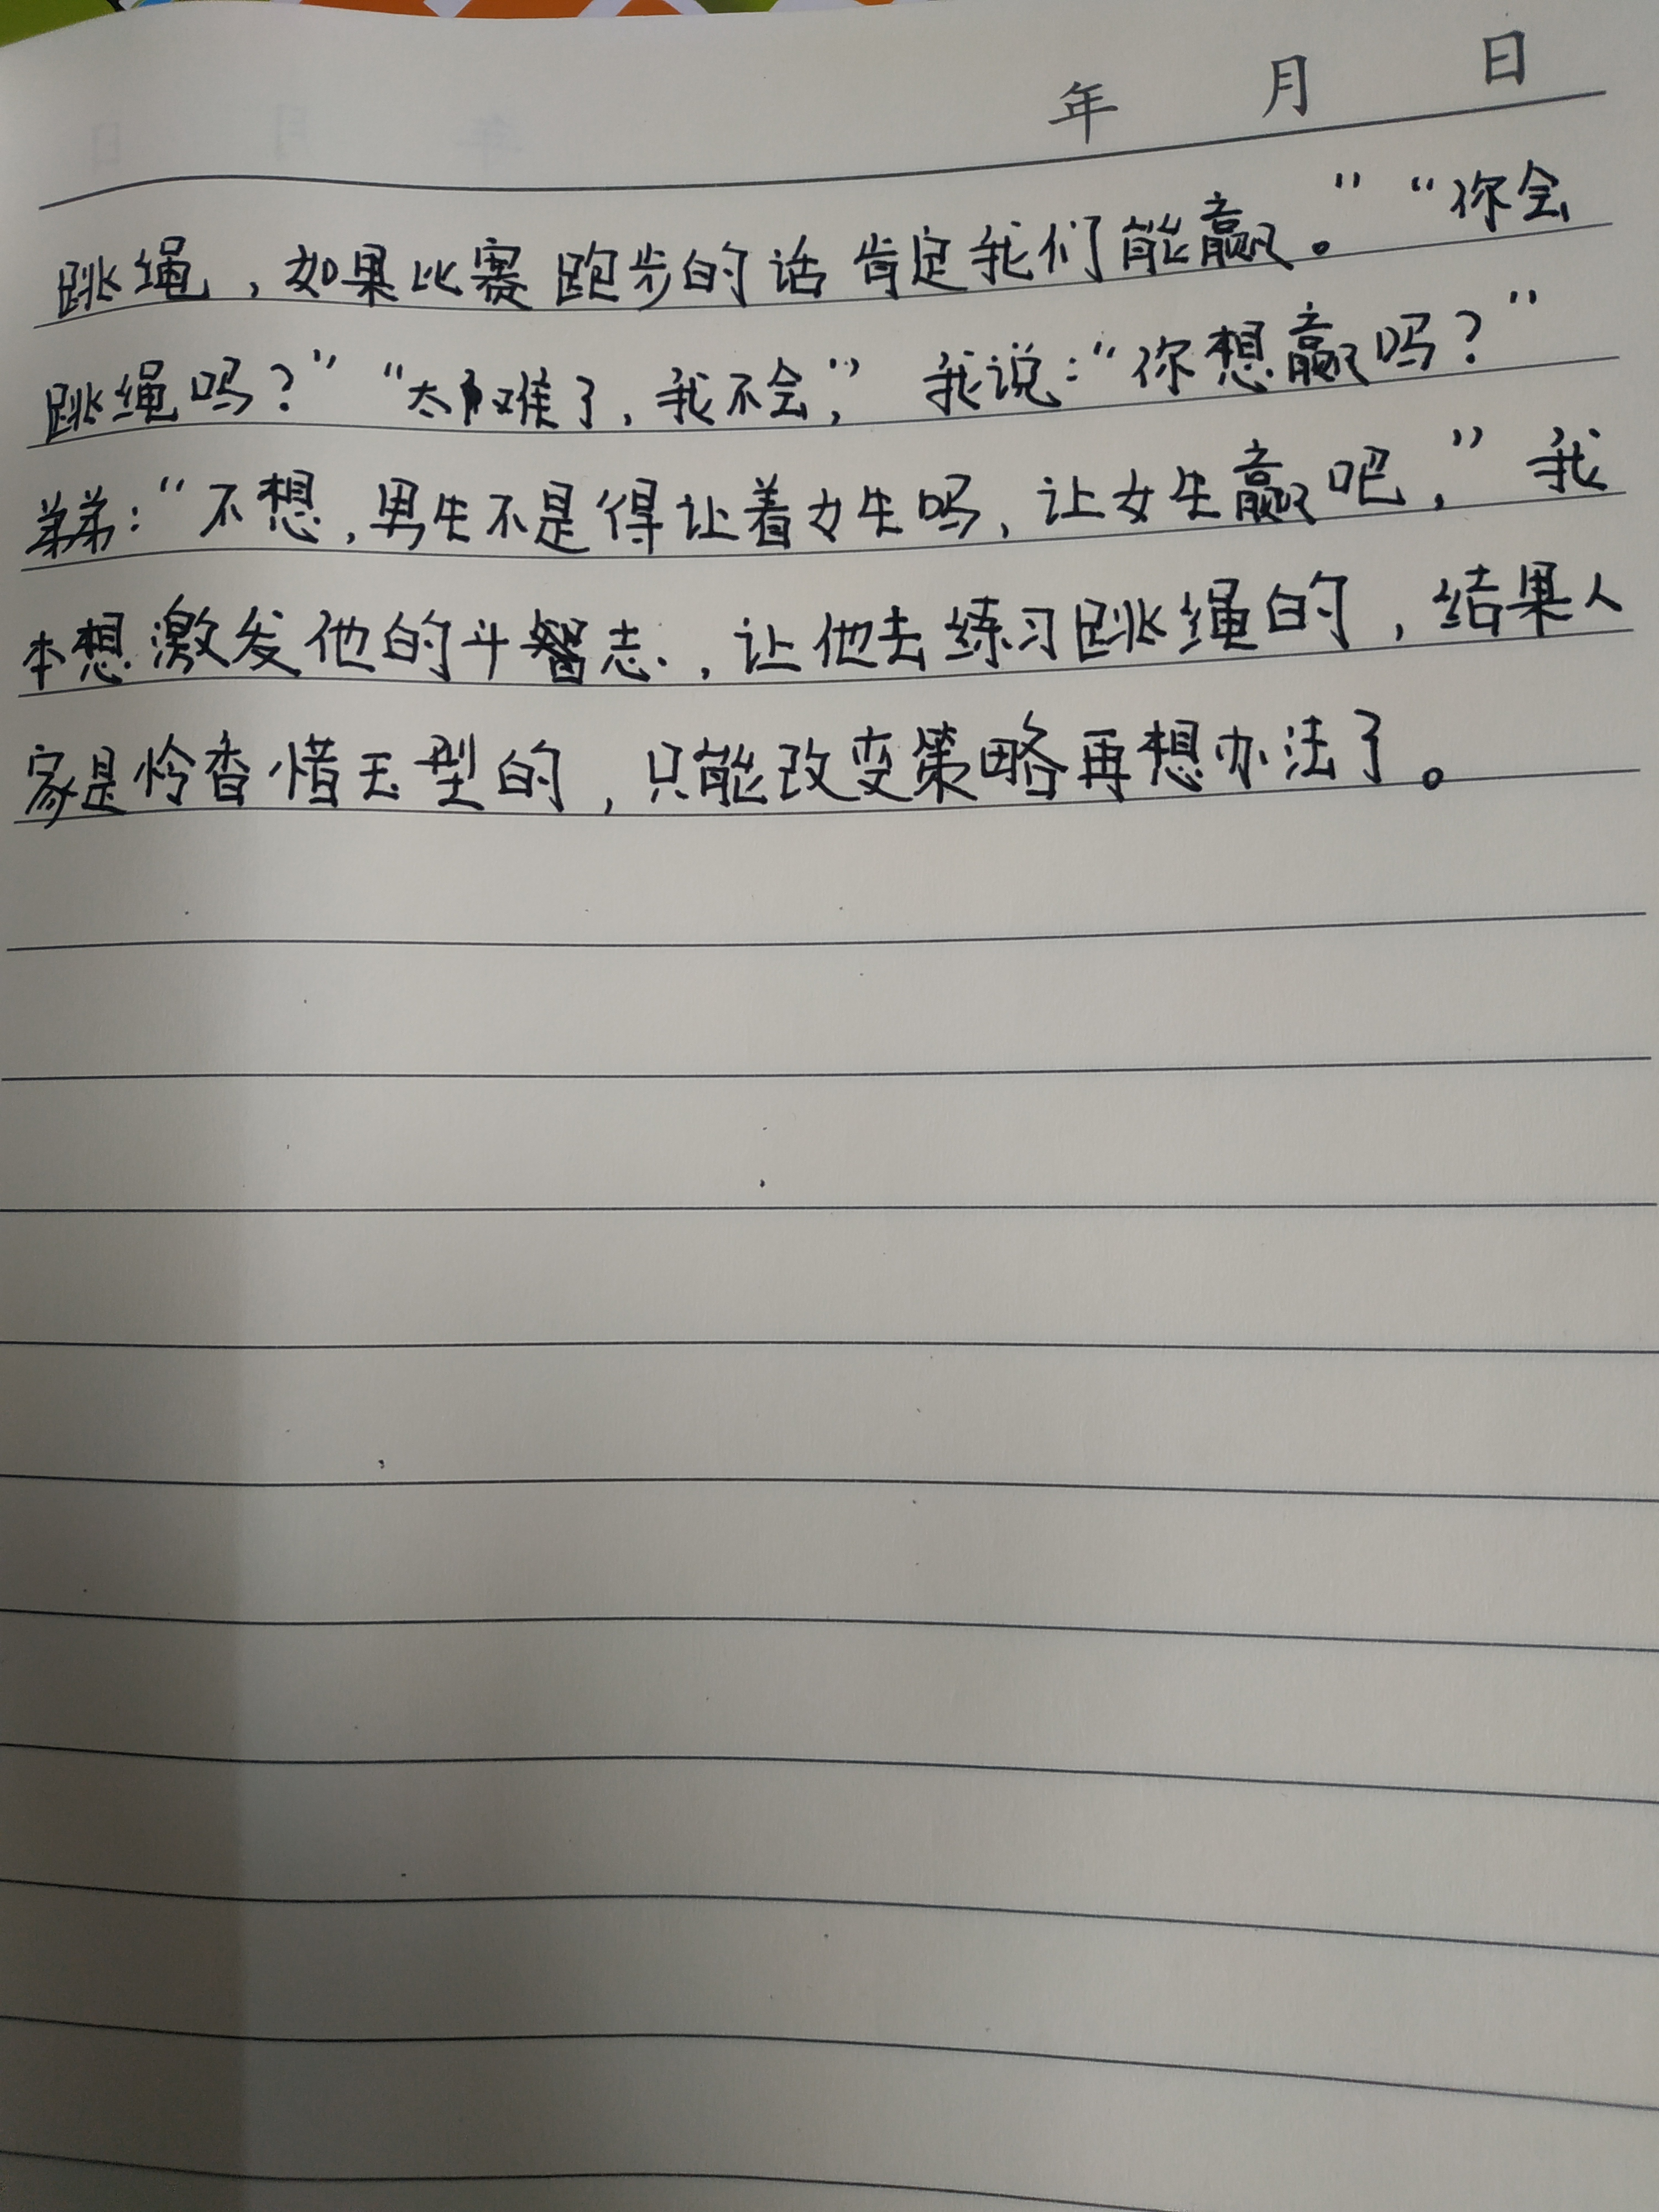 年 月 日
跳绳，如果比赛跑步的话肯定我们能赢。”“你会
跳绳吗？”“太难了，我不会，”我说：“你想赢吗？”
弟弟：“不想，男生不是得让着力生吗，让女生赢吧，”我
本想激发他的斗志，让他去练习跳绳的，结果人
家是怜香惜玉型的，只能改变策略再想办法了。